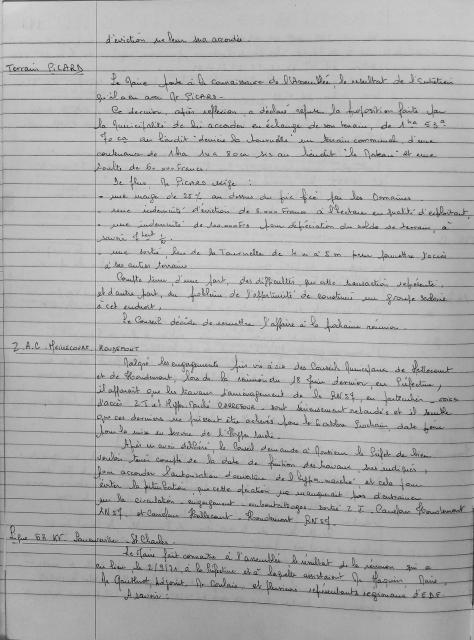 d'éviction ne leur sera accordée.
Terrain PICARD
Le Maire porte à la connaissance de l'Assemblée, le résultat de l'Entretien
qu'il a eu avec Mr PICARD -
Ce dernier, après réflexion, a déclaré refuser la proposition faite par
la Municipalité de lui accorder en échange de son terrain, de 1 ha 53 a
70 ca au lieudit "derrière la Tournelle" un terrain communal, d'une
contenance de 1 ha sis au lieudit "le Plateau" et une
soulte de 60 000 Francs.
De plus, Mr PICARD exige :
- une marge de 25% au dessus du prix fixé par les Domaines
- une indemnité d'éviction de Francs à l'hectare en qualité d'exploitant,
- une indemnité de Frs pour dépréciation du solde de terrain, à
savoir
- une sortie rue de la Tournelle de 4 m à 5 m pour permettre l'accès
à ses autres terrains
Compte tenu d'une part, des difficultés que cette transaction représente,
et d'autre part, du problème de l'opportunité de construire un groupe scolaire
à cet endroit,
Le Conseil décide de remettre l'affaire à la prochaine réunion.
Z.A.C. ROUDEMONT
Malgré les engagements pris vis à vis des Conseils Municipaux de
et de lors de la réunion du 18 Juin dernier, en Préfecture,
il apparait que les travaux d'aménagement de la RN 57, en particulier voies
d'accès Z.I et Hyper Marché CARREFOUR, sont sérieusement retardés et il semble
que ces derniers ne puissent être achevés pour le Octobre prochain, date fixée
pour la mise en service de l'Hyper Marché.
Après en avoir délibéré, le Conseil demande à Monsieur le Préfet de bien
vouloir tenir compte de la date de finition des travaux sus indiqués,
pour accorder l'autorisation d'ouverture de l'Hyper marché et cela pour
éviter la perturbation que cette opération ne manquerait pas d'entrainer
sur la circulation : engagement - embouteillages, sortie Z.I. Carrefour
RN 57, et Carrefour RN 57.
Ligne 63 KV - St Charles -
Le Maire fait connaitre à l'assemblée le résultat de la réunion qui a
eu lieu le 2/9/71 à la Préfecture et à laquelle assistaient Mr Maire,
Mr Adjoint, Mr et plusieurs représentants régionaux d'EDF.
A savoir :